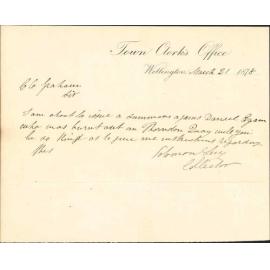 Town Clerk's Office
Wellington, March 21 1878
C C Graham
Sir
I am about to issue a summons against Daniel Egan
who was burnt out on Thorndon Quay will you
be so kind as to give me instructions regarding
this
Solomon Levy
Collector